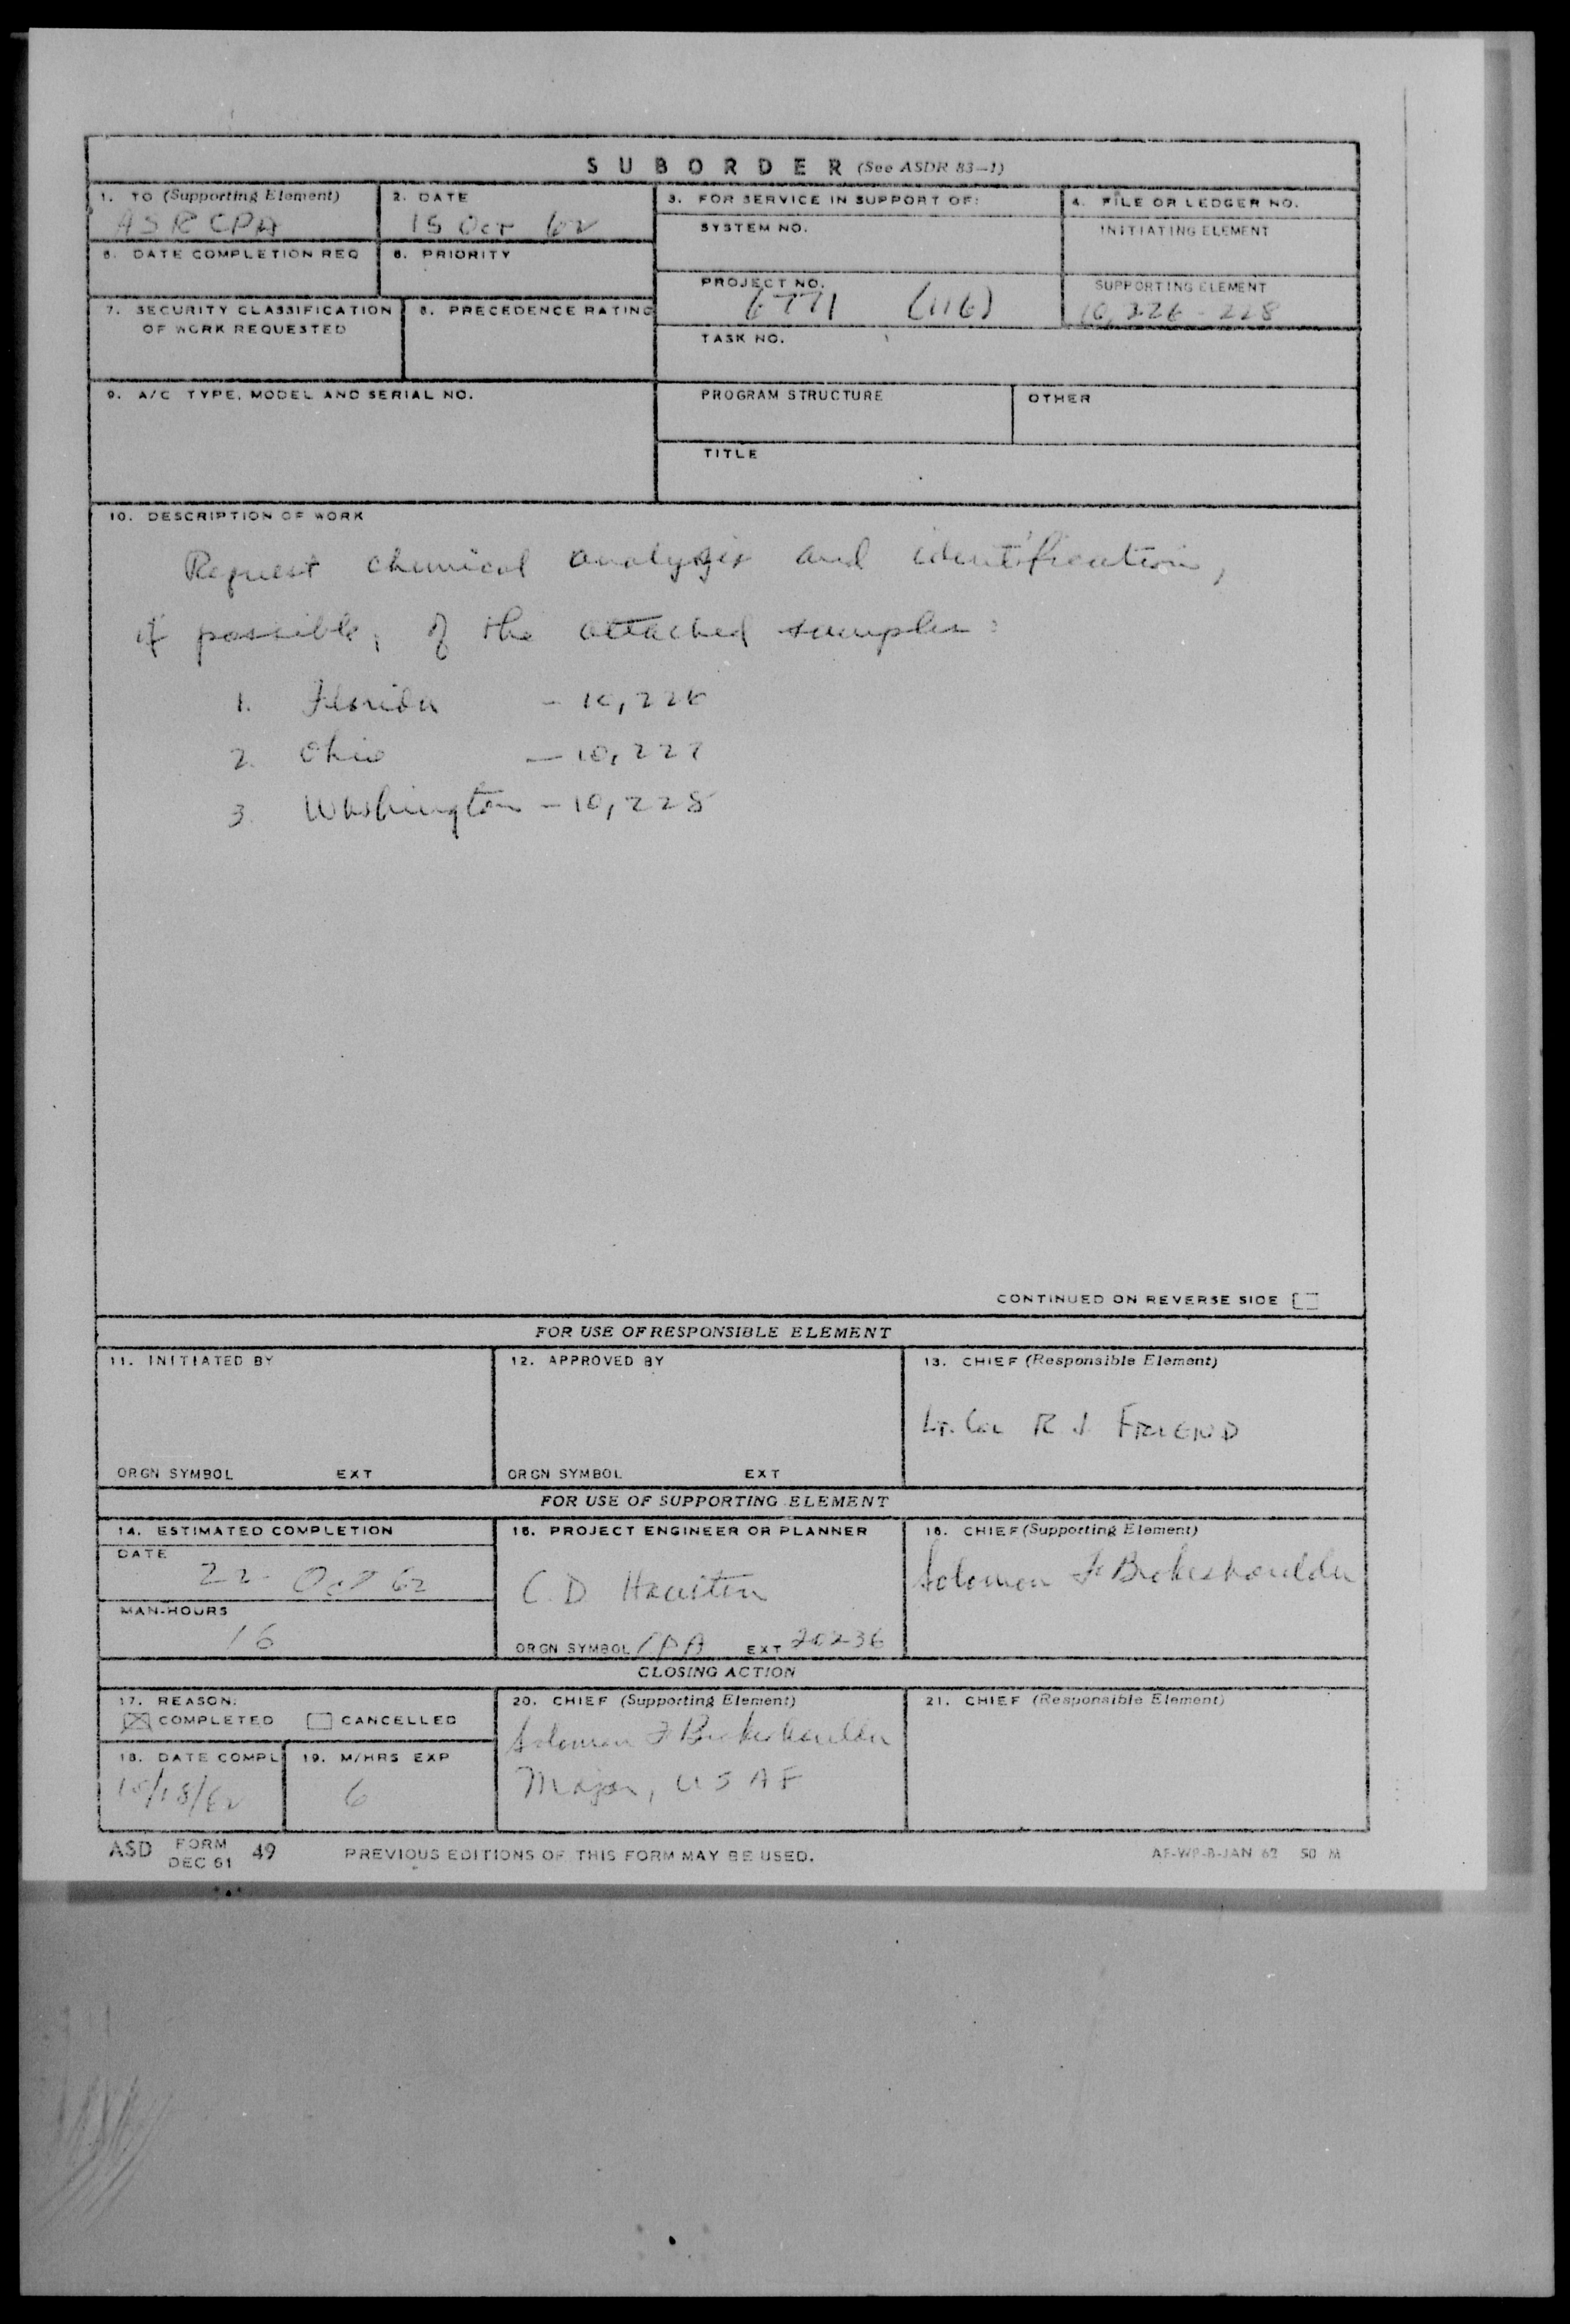 SUBORDER (See ASDR 83-1)
1. TO (Supporting Element)
ASRCPA
2. DATE
15 Oct 62
3. FOR SERVICE IN SUPPORT OF:
SYSTEM NO.
4. FILE OR LEDGER NO.
INITIATING ELEMENT
5. DATE COMPLETION REQ
6. PRIORITY
PROJECT NO.
6771 (116)
SUPPORTING ELEMENT
10,226-228
7. SECURITY CLASSIFICATION
OF WORK REQUESTED
8. PRECEDENCE RATING
TASK NO.
9. A/C TYPE, MODEL AND SERIAL NO.
PROGRAM STRUCTURE
OTHER
TITLE
10. DESCRIPTION OF WORK
Request chemical analysis and identification,
if possible, of the attached samples:
1. Florida - 10,226
2. Ohio - 10,227
3. Washington - 10,228
CONTINUED ON REVERSE SIDE
FOR USE OF RESPONSIBLE ELEMENT
11. INITIATED BY
12. APPROVED BY
13. CHIEF (Responsible Element)
Lt. Col R J FRIEND
ORGN SYMBOL EXT
ORGN SYMBOL EXT
FOR USE OF SUPPORTING ELEMENT
14. ESTIMATED COMPLETION
DATE
22 Oct 62
MAN-HOURS
16
15. PROJECT ENGINEER OR PLANNER
C. D. Houston
ORGN SYMBOL CPA EXT 20236
16. CHIEF (Supporting Element)
Solomon F Brokeshoulder
CLOSING ACTION
17. REASON:
COMPLETED CANCELLED
18. DATE COMPL
10/18/62
19. M/HRS EXP
6
20. CHIEF (Supporting Element)
Solomon F Brokeshoulder
Major, USAF
21. CHIEF (Responsible Element)
ASD FORM DEC 61 49
PREVIOUS EDITIONS OF THIS FORM MAY BE USED.
AF-WP-B-JAN 62 50 M